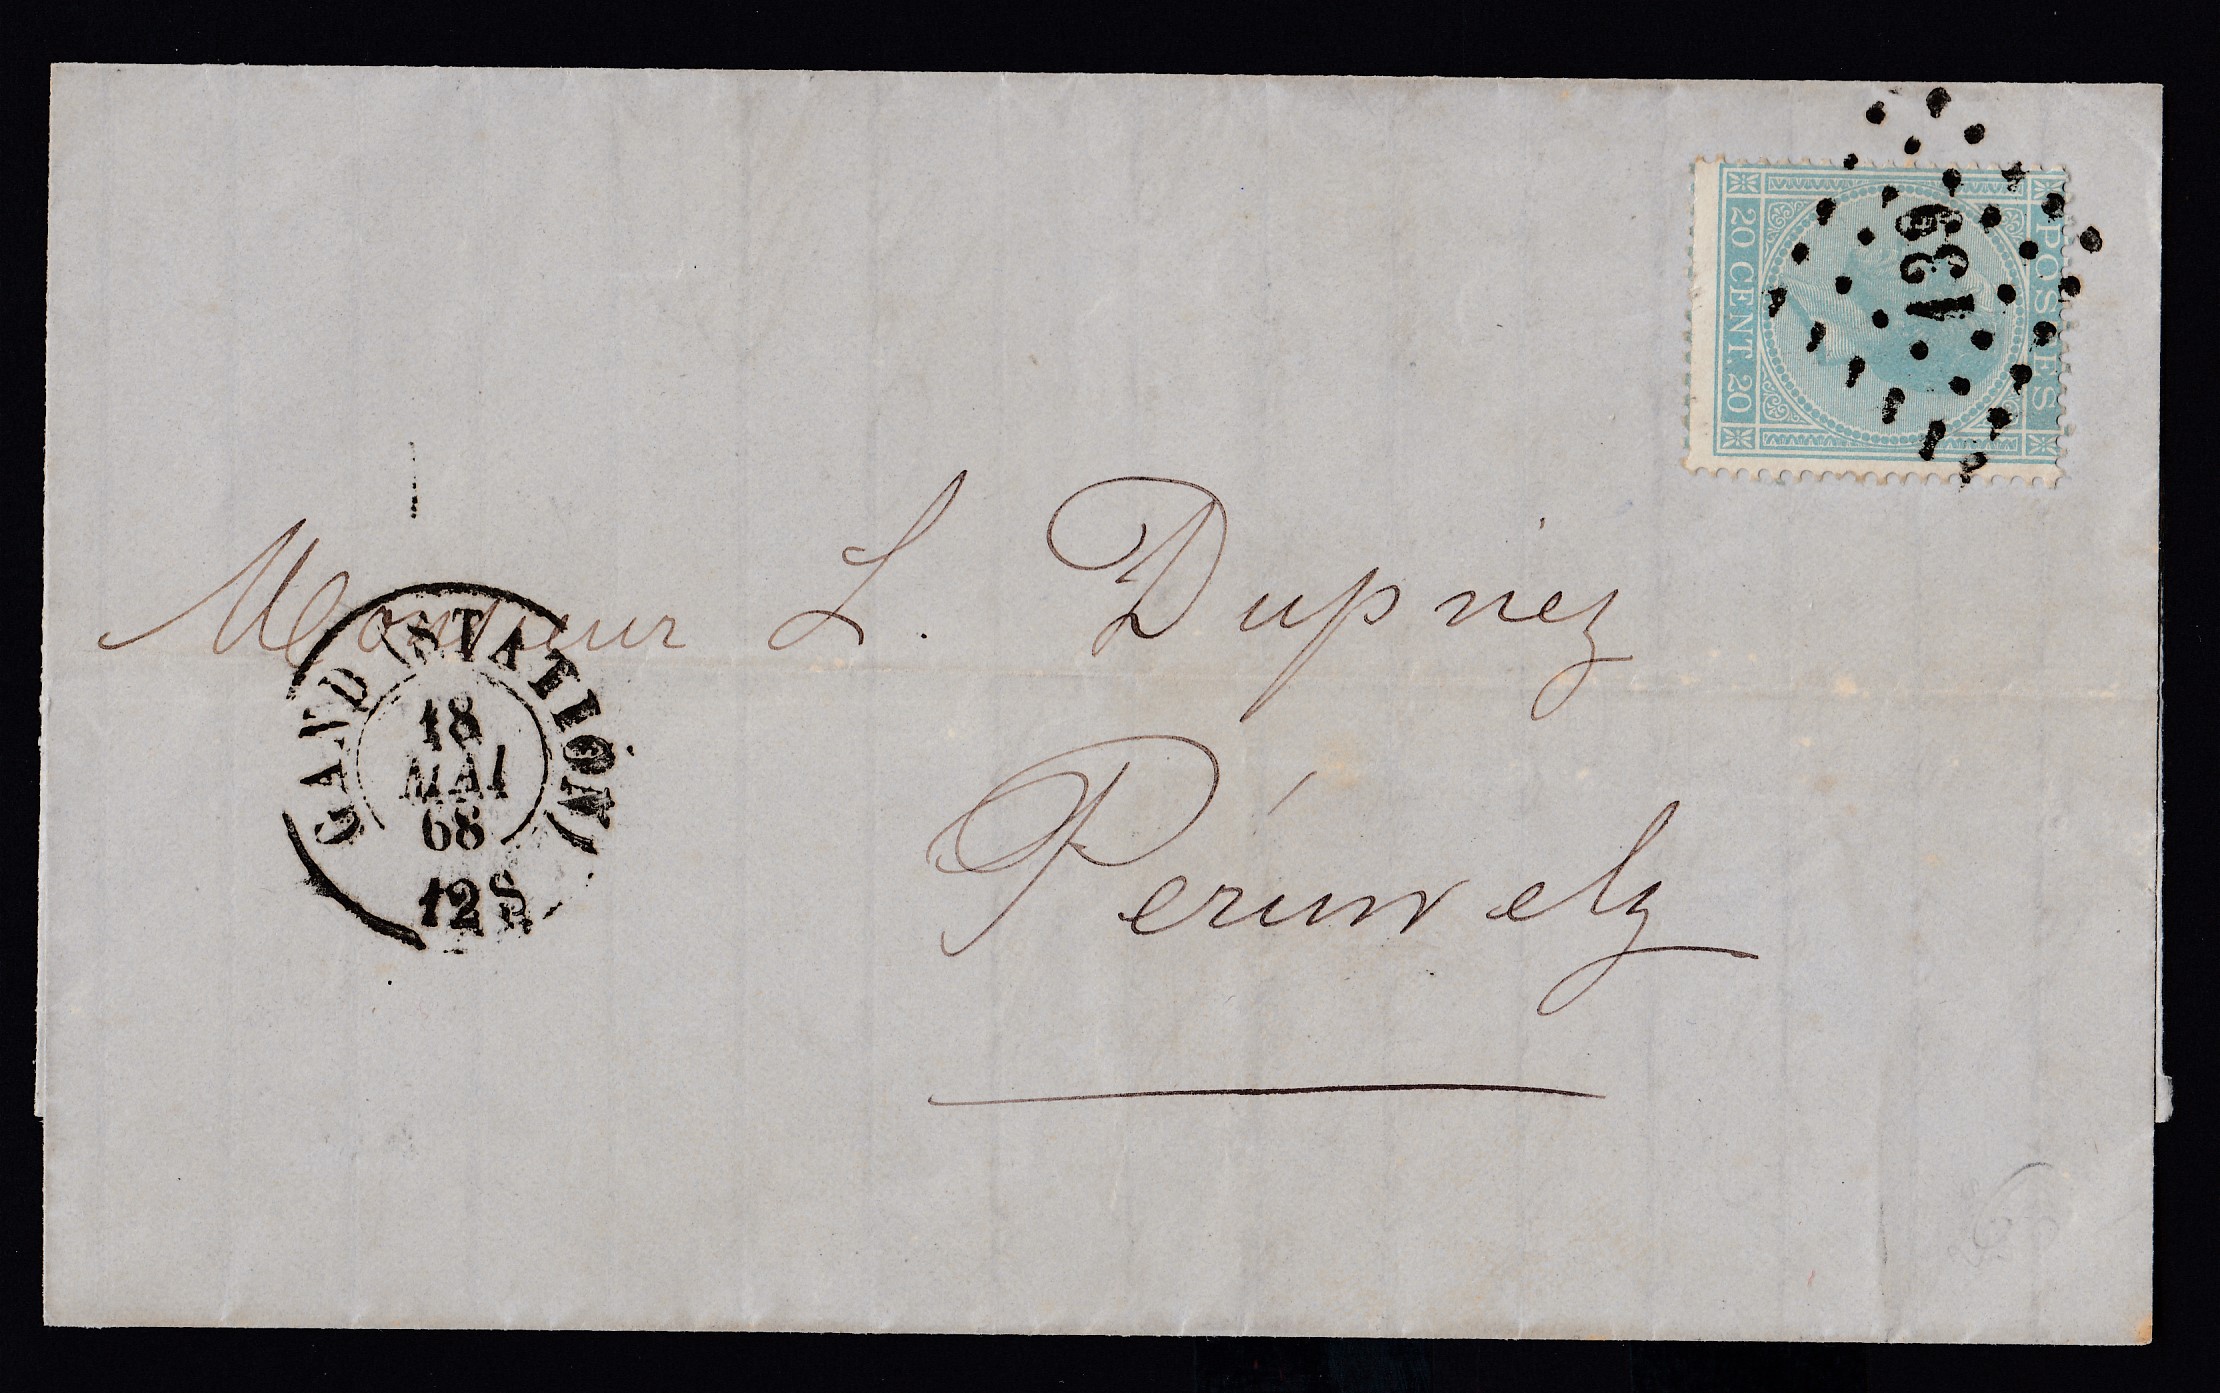 POSTES
20 CENT. 20
139
Monsieur L. Dupriez
Péruwelz
GAND (STATION)
18
MAI
68
12 S